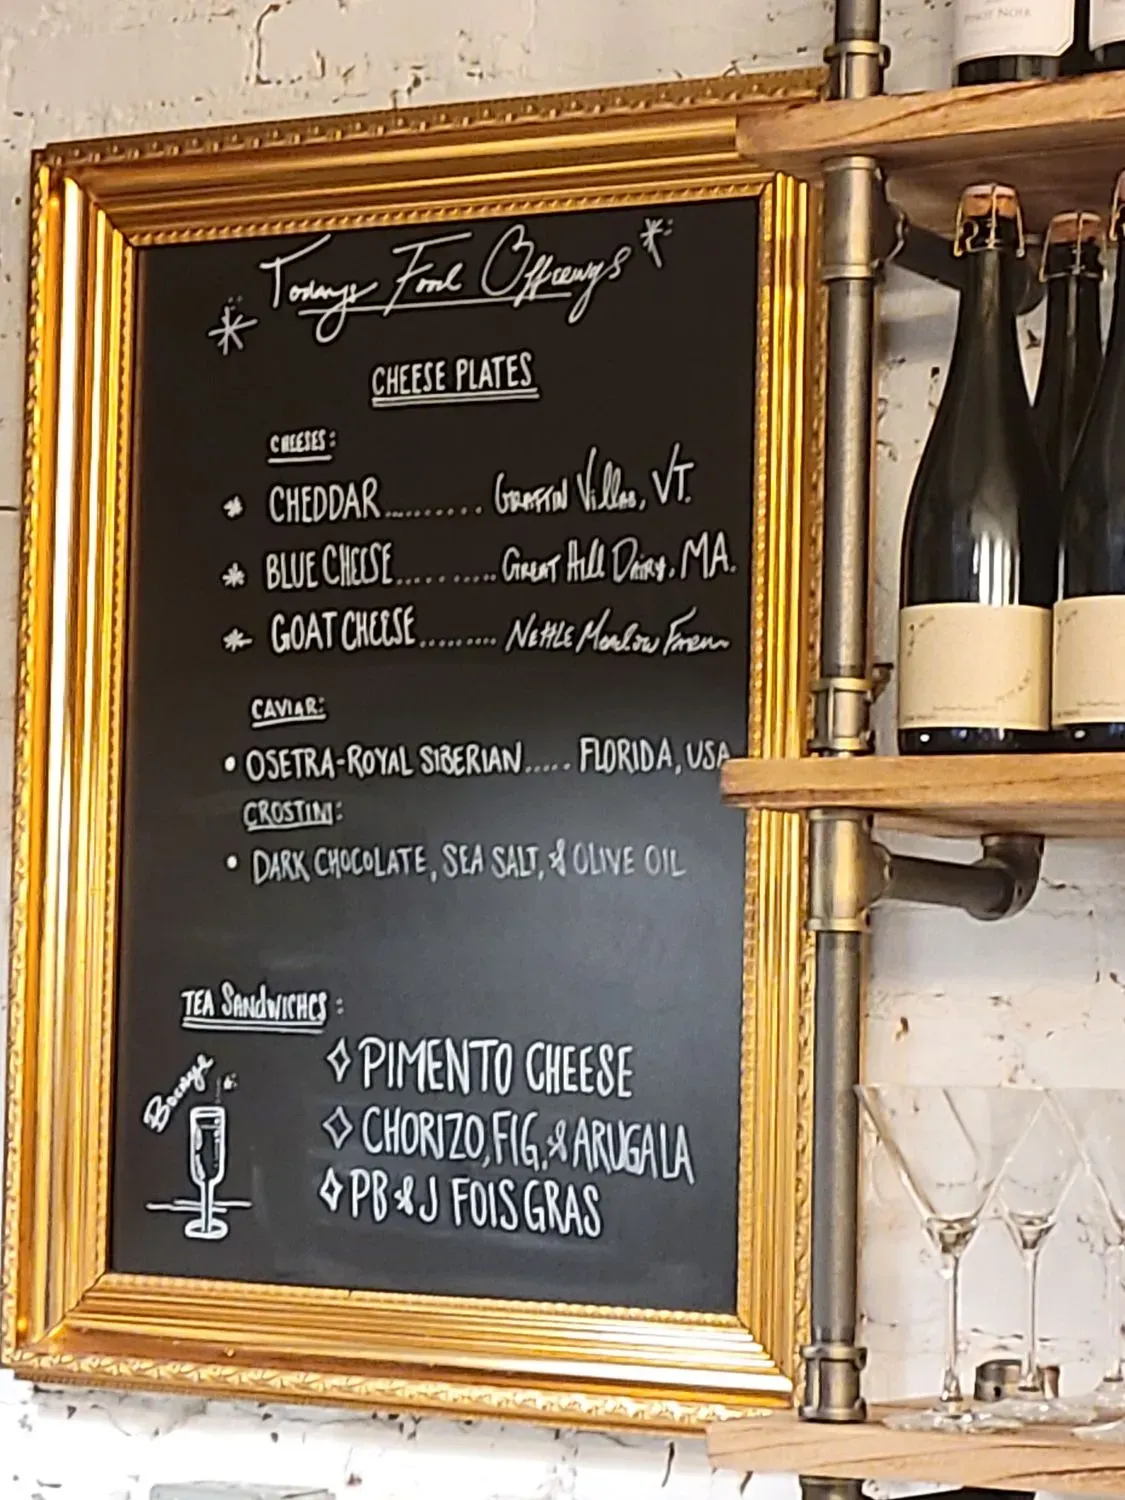 PINOT NOIR
Todays Food Offerings
CHEESE PLATES
CHEESES:
* CHEDDAR......... GRAFTIN Village, VT.
* BLUE CHEESE.......... GREAT Hill DAIRY, MA.
* GOAT CHEESE......... NETTLE Meadow Farm
CAVIAR:
• OSETRA-ROYAL SIBERIAN..... FLORIDA, USA
CROSTINI:
• DARK CHOCOLATE, SEA SALT, & OLIVE OIL
TEA SANDWICHES:
◇ PIMENTO CHEESE
◇ CHORIZO, FIG, & ARUGALA
◇ PB & J FOIS GRAS